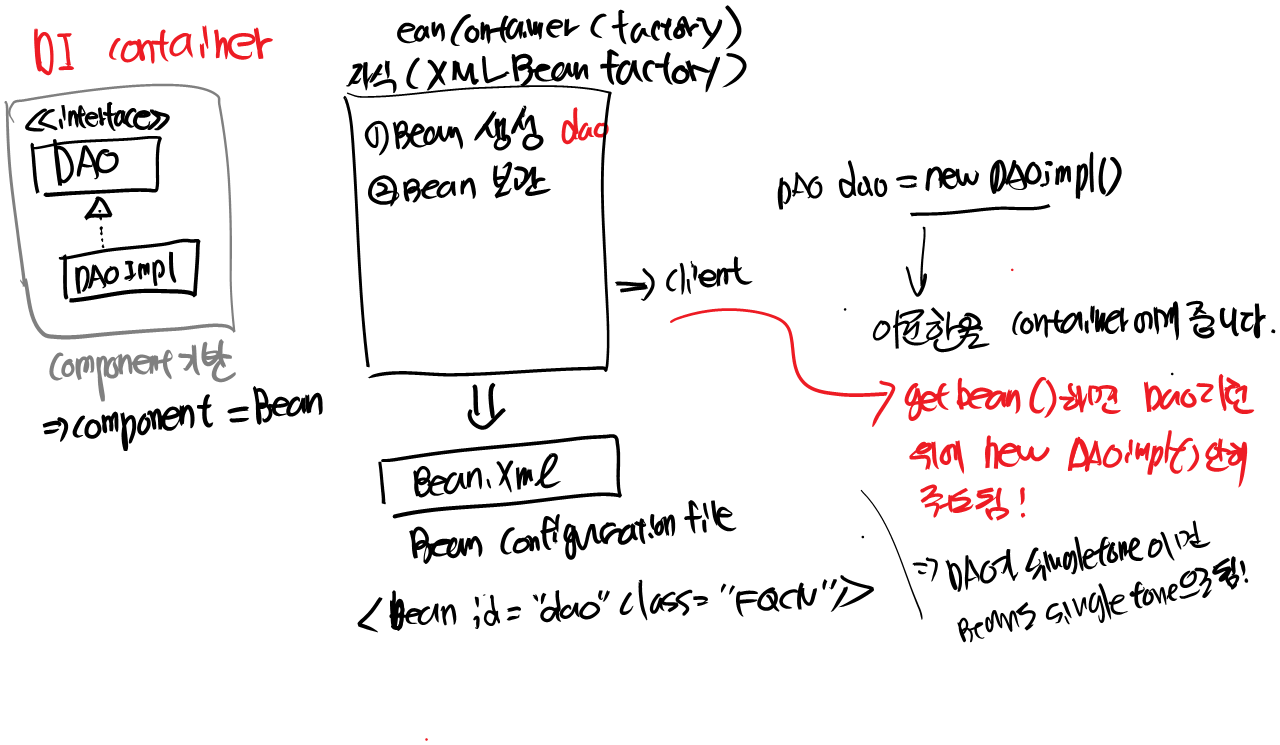 DI container
<<interface>>
DAO
DAO Impl
component 기반
⇒ component = Bean
ean Container (factory)
자식 (XML Bean factory)
① Bean 생성 dao
② Bean 보관
⇒ client
Bean.xml
Bean configuration file
<bean id = "dao" class= "FQCN">
DAO dao = new DAOimpl()
container에게 줍니다.
get bean() 하면 Dao리턴
위에 new DAOimpl() 안해
줘도됨!
⇒ DAO singletone 이면
Bean도 singletone으로됨!